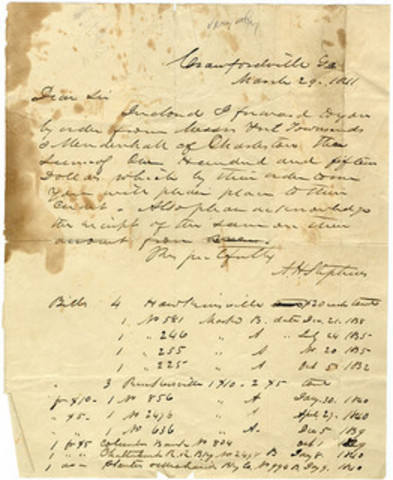 Crawfordville Ga
March 29. 1841
Dear Sir
Inclosed I forward to you
by order from Messrs Townsends
& Mendenhall of Charleston the
sum of One Hundred and fifteen
Dollars which by their order to me
you will please place to their
credit. Also please acknowledge
the receipt of the same on their
account from
Respectfully
A. H. Stephens
Bills 4 Hawkinsville $20 each
1 No 581 Mark'd B. date Dec 21. 1838
1 " 246 " A " July 24 1835
1 " 255 " A " No. 20 1835
1 " 225 " A Oct 5 1832
" 3 1 $10 - 2 $5
for $10 - 1 No 856 " A Jany. 30. 1840
" $5 - 1 No 2476 " A Apl 27. 1840
1 No 636 " A - Dec 5 1839
1 for $5 Columbus Bank No 804 Oct 1
1 " " R. R. Bkg No 2487 B Jany 8 1840
1 " Planters & Mechanics Bkg Co. No B Jany 9. 1840